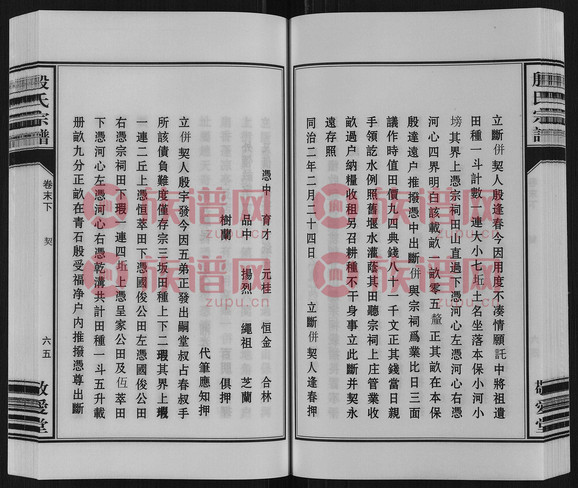 殷氏宗譜
立斷併契人殷逢春今因用度不凑情願託中將祖遺
田種一斗計數一連大小七坵土名坐落本保小河小
塝其界上憑宗祠田山直過下憑河心左憑河心右憑
河心四界明白該載畝一畝零五釐正其畝在本保
殷達遠户推撥憑中出斷併與宗祠爲業比日三面
議作時值田價九四典錢八十一千文正其錢當日親
手領訖水例照舊堰水灌蔭其田聽宗祠上庄管業收
畝過户納糧收租另召耕種不干身事立此斷併契永
遠存照
同治二年二月二十四日 立斷併契人逢春押
敬愛堂
憑中 育才 元桂 恒金 合林
品中 揚烈 繩祖 芝蘭
樹蘭 俱押
代筆應知押
立併契人殷字發今因五弟正發出嗣堂叔占春叔手
所該債負難度僅存宗三坂田種上下二坵其界上堰
一連二丘上憑恒萃田下憑國俊公田左憑國俊公田
右憑宗祠田下瑕一連四坵上憑呈家公田及伍萃田
下憑河心左憑河心右憑乾溝共計田種一斗五升載
册畝九分正畝在青石殷受福净户内推撥憑尊出斷
殷氏宗譜
卷末下
契
六五
敬愛堂
族譜网
zupu.cn
族譜网
zupu.cn
族譜网
zupu.cn
族譜网
zupu.cn